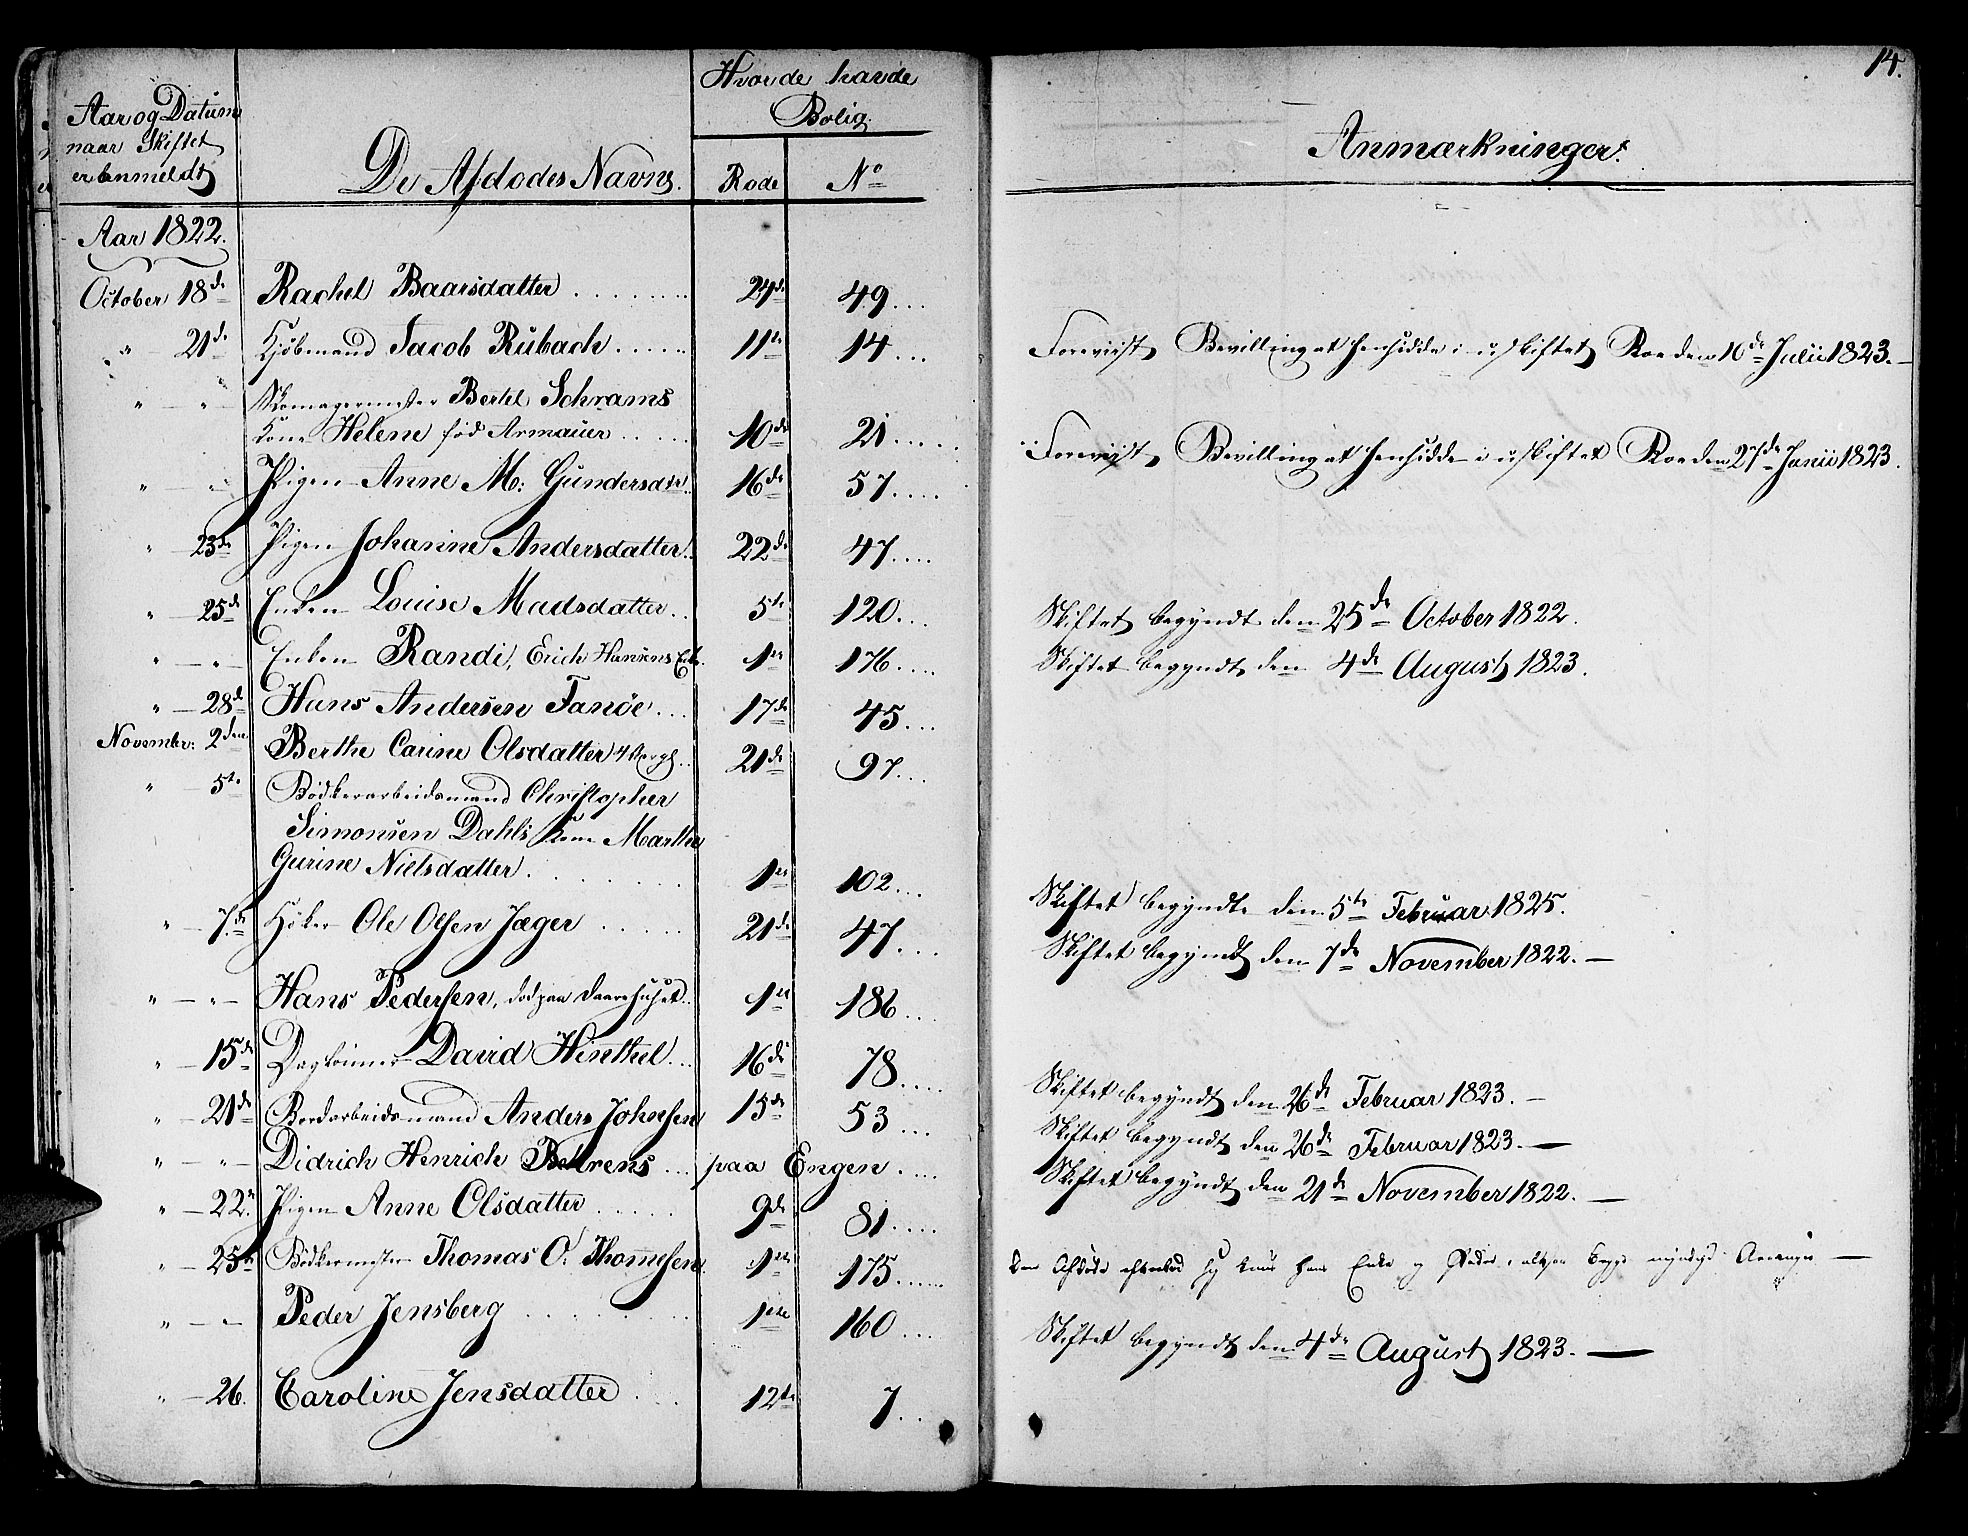 14.
Aar og Datum
naar Skiftet
er anmeldt
De Afdødes Navne.
Hvor de havde
Bolig.
Rode No
Anmærkninger.
Aar 1822.
October 18de Rachel Baarsdatter ........ 24de 49....
" — 21de Kjøbmand Jacob Rubach ...... 11te 14... Foreviist Bevilling at hensidde i uskiftet Boe den 10de Julii 1823. —
" — " — Skomagermester Bertel Schrams
Kone Helene fød Armauer ...... 10de 21..... Foreviist Bevilling at hensidde i uskiftet Boe den 27de Junii 1823.
" — " — Pigen Anne M: Gundersdatr.. 16de 57....
" — 23de Pigen Johanne Andersdatter.. 22de 47....
" — 25de Enken Louise Madsdatter.. 5te 120... Skiftet begyndt den 25de October 1822.
" — " — Enken Randi, Erich Hansens Enke. 1te 176.... Skiftet begyndt den 4de August 1823.
" — 28de Hans Andersen Fanøe... 17de 45...
November: 2den Berthe Carine Olsdatter .. 21de 97...
" — 5te Bødkerarbeidsmand Christopher
Simonsen Dahls Kone Marthe
Gurine Nielsdatter........ 1te 102... Skiftet begyndte den 5te Februar 1825.
" — 7.de Høker Ole Olsen Jæger ...... 21de 47.... Skiftet begyndt den 7de November 1822. —
" — " — Hans Pedersen, død paa Daarehuset.. 1te 186....
" — 15de Daglønner David Hinthel... 16de 78..... Skiftet begyndt den 26de Februar 1823. —
" — 21de Bordarbeidsmand Anders Johnsen 15de 53.... Skiftet begyndt den 26de Februar 1823. —
" — " — Didrich Henrich Behrens ... paa Engen.... Skiftet begyndt den 21de November 1822. —
" — 22. Pigen Anne Olsdatter ...... 9de 81....
" — 25de Bødkermester Thomas O. Thomesen. 1te 175...... Den Afdøde efterlod sig kuns hans Enke og myndige —
" — " — Peder Jensberg .......... 1te 160.... Skiftet begyndt den 4de August 1823. —
" — 26. Caroline Jensdatter ... 12te 7...